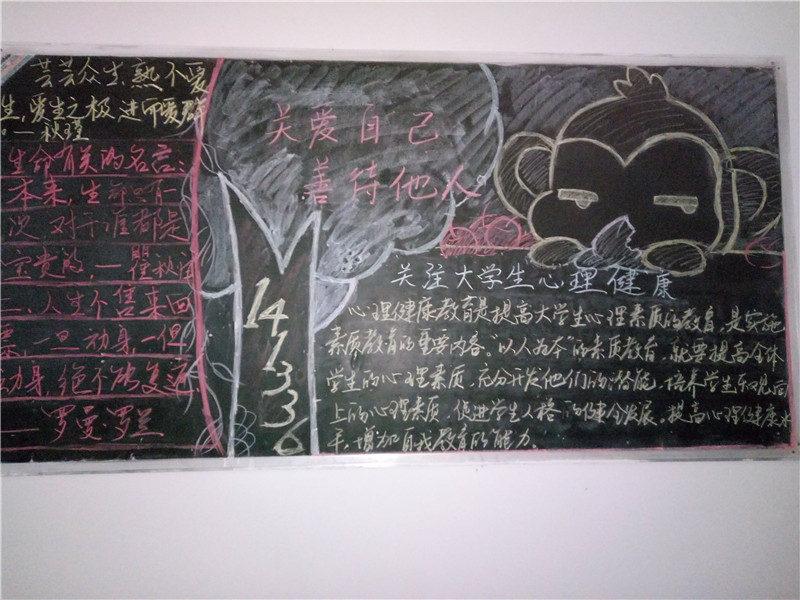 芸芸众生熟不爱
生,爱生之极进而爱群
一秋瑾
生命有关的名言:
本来,生命只有一
次,对于谁都是
宝贵的,一瞿秋白
二、人生不售来回
票,一旦动身,一但
动身,绝不能复返
罗曼·罗兰
关爱自己
善待他人
14
1
3
3
6
关注大学生心理健康
心理健康教育是提高大学生心理素质的教育,是实施
素质教育的重要内容。“以人为本”的素质教育,就要提高全体
学生的心理素质,充分开发他们的潜能,培养学生乐观向
上的心理素质,促进学生人格的健全发展,提高心理健康水
平,增加自我教育的能力.